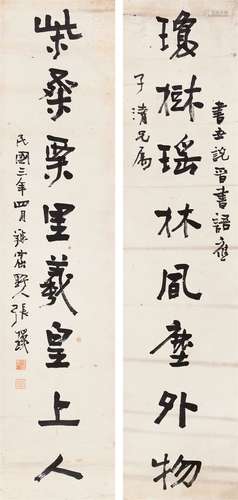 書世說晉書語應
瓊樹瑶林風塵外物
子清兄属
柴桑栗里羲皇上人
民國三年四月 野人張